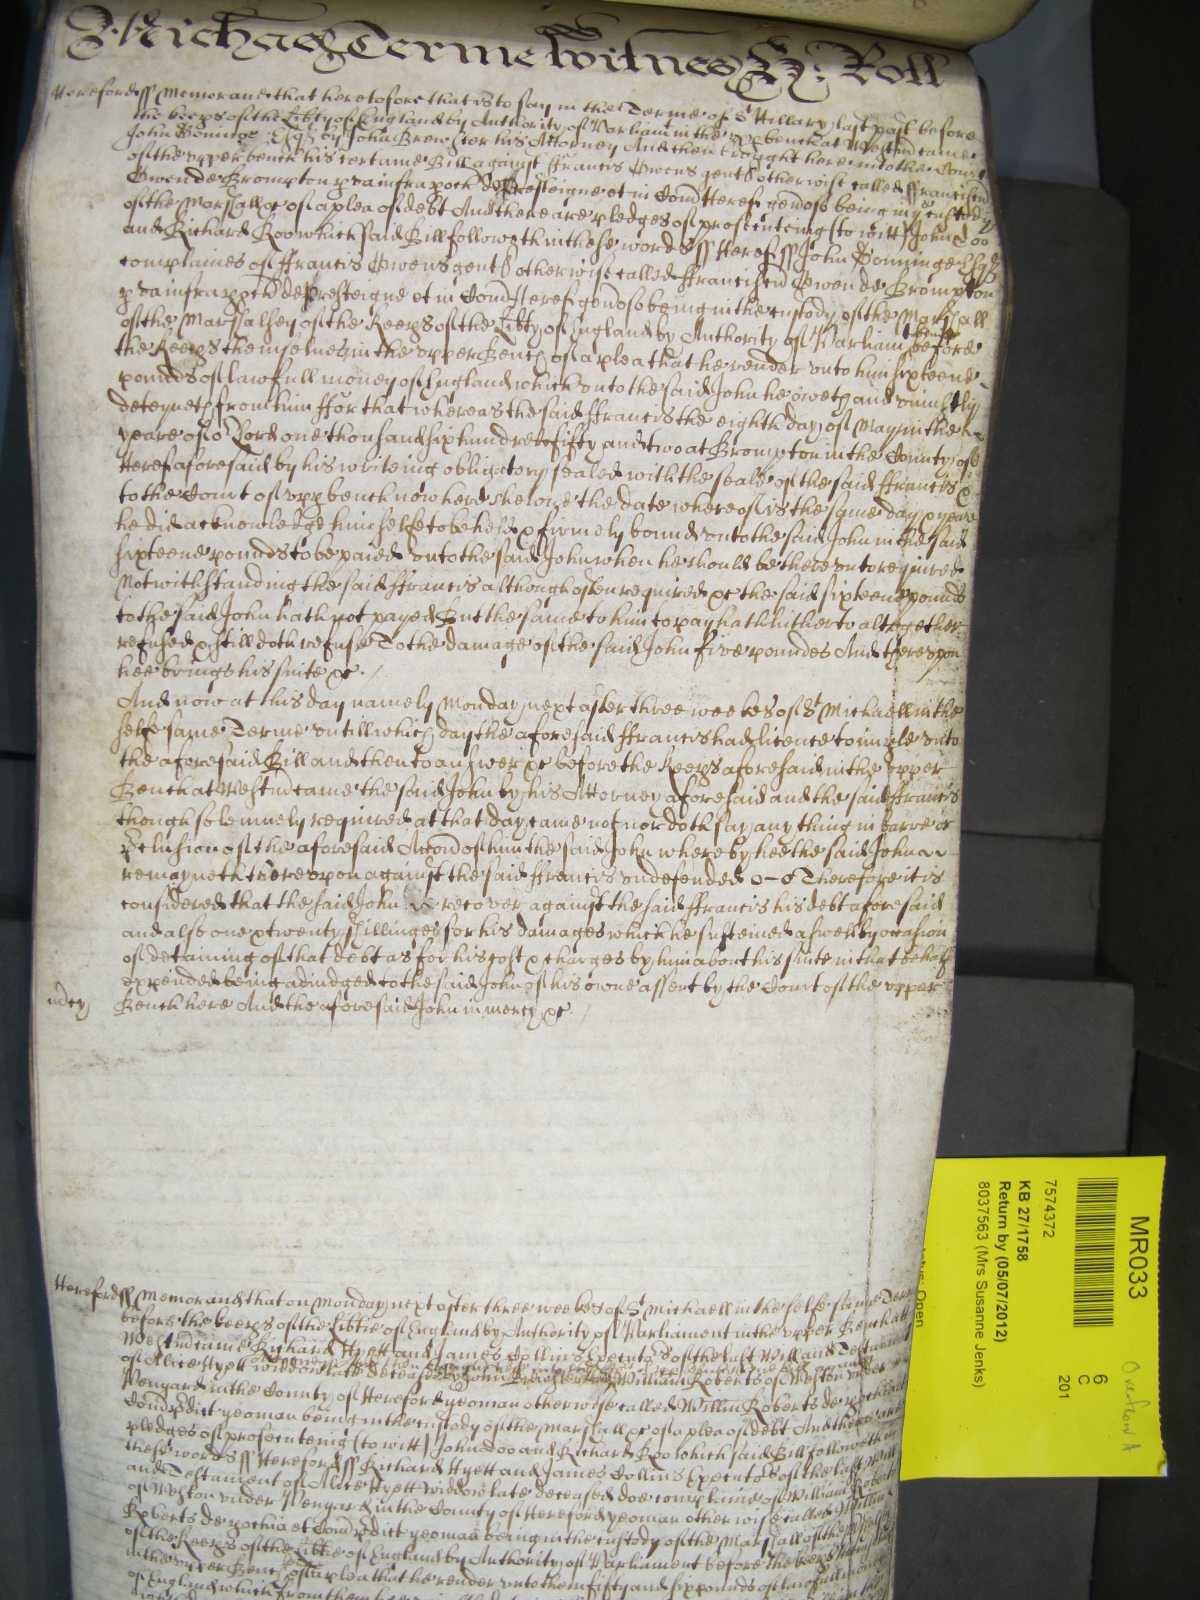 Michaes Terme Witnes Ry: Roll
Hereford ss Memorand that heretofore that is to say in the Terme of St Hillary last past before
the keeps of the Libty of England by Authority of Parliam in the upp bench at Westm came
John Bonninge Esqr by John Brewster his Attorney And then brought here into the Court
of the upper bench his certaine Bill against ffrancis Owens gent otherwise called ffranciscu
Owen de Brompton p va infra poch de presteigne et in Com Heref genoso being in custody
of the Marshall &c of a plea of debt And there are pledges of prosecuteing (to witt) John Doo
and Richard Roo which said Bill followeth in these words ss Heref ss John Bonninge Esqr
complaines of ffrancis Owens gent otherwise called ffranciscu Owen de Brompton
p va infra poch de presteigne et in Com Heref genoso being in the custody of the Marshall
of the Marshalsey of the Keeps of the Libty of England by Authority of Parliam before
the Keeps themselves in the upper Bench of a plea that he render unto him sixteene
pounds of lawfull money of England which unto the said John he oweth and uniustly
deteyneth from him ffor that whereas the said ffrancis the eighth day of May in the
yeare of or Lord one thousand six hundred fifty and two at Brompton in the County of
Heref aforesaid by his writeing obligatory sealed with the seale of the said ffrancis &
to the Court of upp bench now here shewne the date whereof is the same day & yeare
he did acknowledge himselfe to be held & firmely bound unto the said John in the said
sixteene pounds to be paied unto the said John when he should be thereunto required
Notwithstanding the said ffrancis although often required &c the said sixteene pounds
to the said John hath not payed But the same to him to pay hath hitherto altogether
refused & still doth refuse To the damage of the said John five poundes And thereupon
hee brings his suite &c.
And now at this day namely Monday next after three weekes of St Michaell in the
selfe same Terme untill which day the aforesaid ffrancis had licence to imple unto
the aforesaid Bill and then to answer &c before the Keeps aforesaid in the upper
Bench at Westm came the said John by his Attorney aforesaid and the said ffrancis
though solemnely required at that day came not nor doth say any thing in barre or
pclusion of the aforesaid Accon of him the said John whereby hee the said John
remayneth thereupon against the said ffrancis undefended Therefore it is
considered that the said John recover against the said ffrancis his debt aforesaid
and also one & twenty shillinges for his damages which he susteined aswell by occasion
of detaining of that debt as for his cost & charges by him about his suite in that behalf
expended being adiudged to the said John of his owne assent by the Court of the upper
mcy Bench here And the aforesaid John in mercy &c
Hereford ss Memorand that on Monday next after three weekes of St Michaell in the selfe same Terme
before the keeps of the Libtie of England by Authority of Parliament in the upper Bench att
Westm came Richard Hyett and James Collins Executors of the last Will and Testament
of Alice Hyett widdow late deceased by John William Roberts of Weston under
Penyard in the County of Hereford yeoman otherwise called Willm Roberts de
Com pdict yeoman being in the custody of the Marshall &c of a plea of debt And there are
pledges of prosecuteing (to witt) John Doo and Richard Roo which said Bill followeth in
these words ss Hereford ss Richard Hyett and James Collins Executors of the last Will
and Testament of Alice Hyett widdow late deceased doe complaine of William Roberts
of Weston under Penyard in the County of Hereford yeoman otherwise called Willm
Roberts de pochia et Com pdict yeoman being in the custody of the Marshall of the
of the Keeps of the Libtie of England by Authority of Parliament before the keeps
in the upper Bench of a plea that he render unto them fifty and six pounds of lawfull money
of England which from them
MR033
6
C
201
7574372
KB 27/1758
Return by (05/07/2012)
8037563 (Mrs Susanne Jenks)
Open
Overflow A